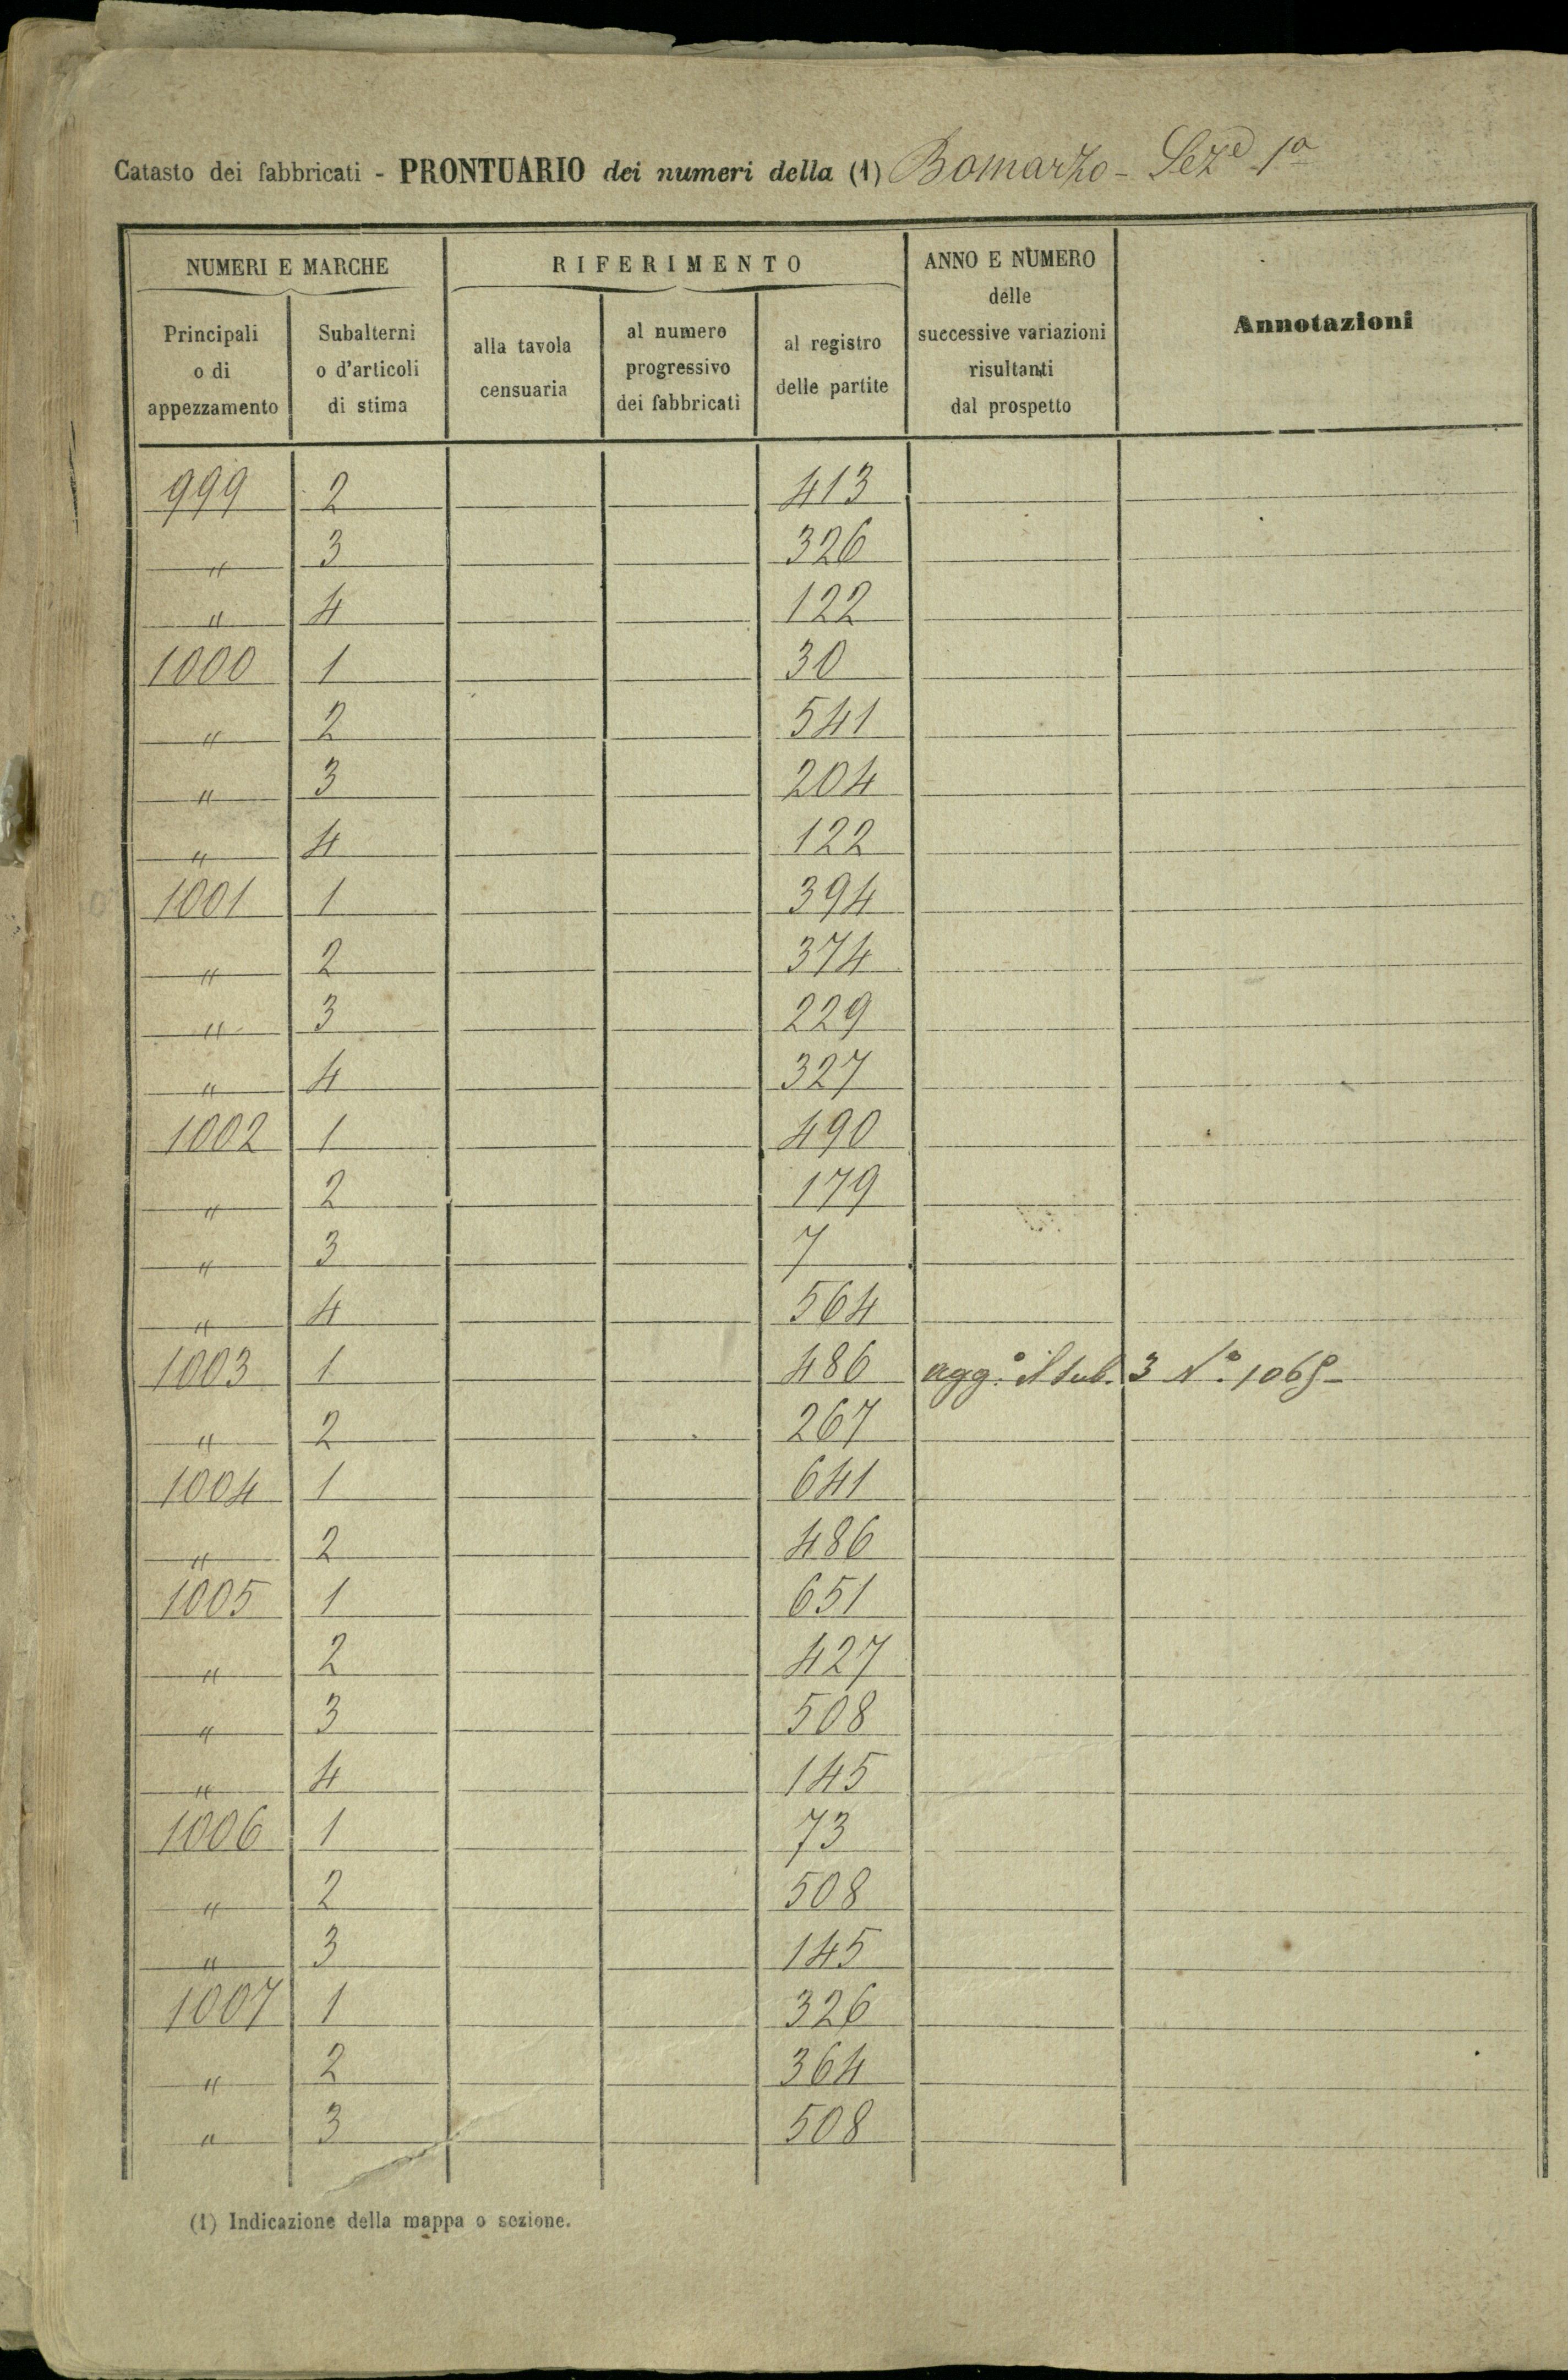 Catasto dei fabbricati - PRONTUARIO dei numeri della (1) Bomarzo - Seze 1a
NUMERI E MARCHE
Principali o di appezzamento
Subalterni o d'articoli di stima
RIFERIMENTO
alla tavola censuaria
al numero progressivo dei fabbricati
al registro delle partite
ANNO E NUMERO delle successive variazioni risultanti dal prospetto
Annotazioni
999 2 413
" 3 326
" 4 122
1000 1 30
" 2 541
" 3 204
" 4 122
1001 1 394
" 2 374
" 3 229
" 4 327
1002 1 490
" 2 179
" 3 7
" 4 564
1003 1 486 agg.o il sub. 3 No. 1069
" 2 267
1004 1 641
" 2 486
1005 1 651
" 2 427
" 3 508
" 4 145
1006 1 73
" 2 508
" 3 145
1007 1 326
" 2 364
" 3 508
(1) Indicazione della mappa o sezione.